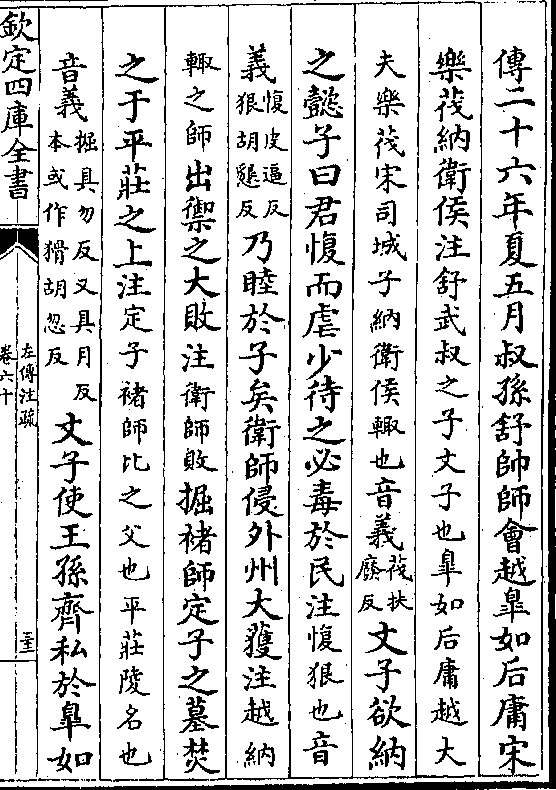 傳二十六年夏五月叔孫舒帥師會越臯如后庸宋
樂茷納衛侯注舒武叔之子文子也臯如后庸越大
夫樂茷宋司城子納衛侯輒也音義茷扶
廢反文子欲納
之懿子曰君愎而虐少待之必毒於民注愎狠也音
義愎皮逼反
狠胡懇反乃睦於子矣衛師侵外州大獲注越納
輒之師出禦之大敗注衛師敗掘褚師定子之墓焚
之于平莊之上注定子褚師比之父也平莊陵名也
音義掘具勿反又具月反
本或作搰胡忽反文子使王孫齊私於臯如
欽定四庫全書
左傳注疏
卷六十